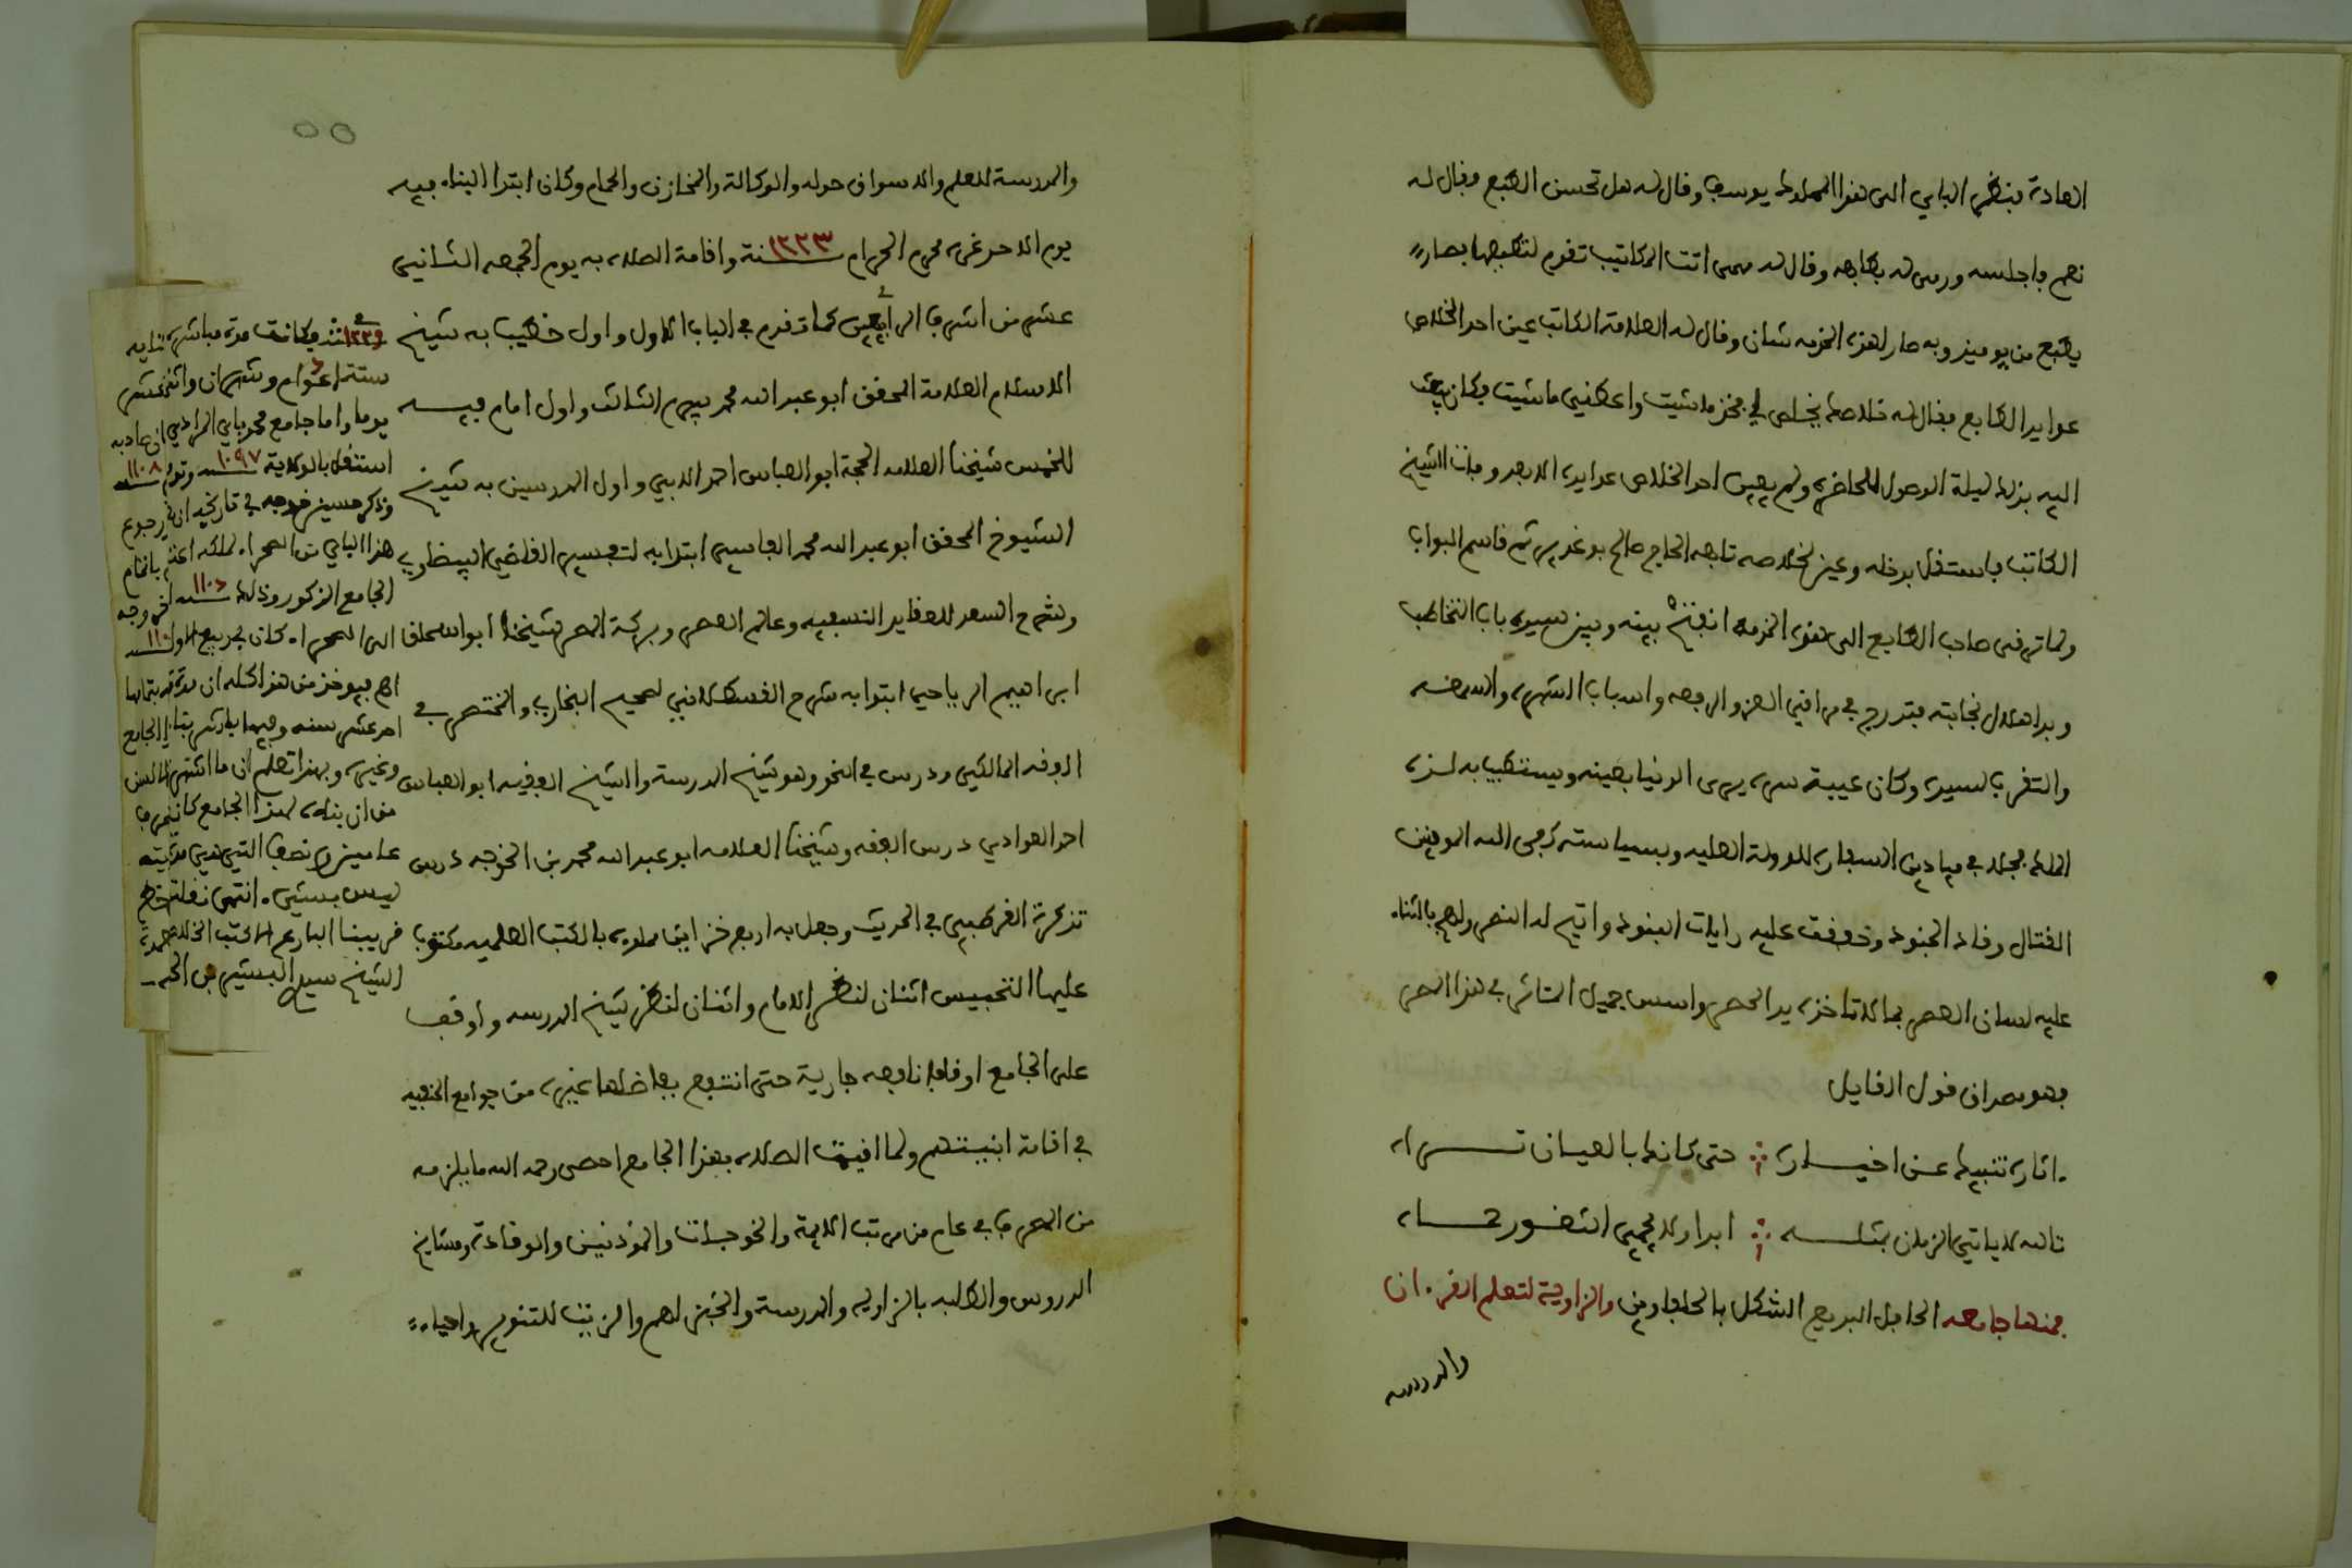 العادة فنظر الباي الى هذا المملوك يوسف وقال له هل تحسن الطبع فقال له
نعم فاجلسه ورمى له بطابعه وقال له متى اتت المكاتيب تقدم لتطبعها فصار
يطبع من يوميذ وبه صار لهذه الخدمه شان وقال له العلامة الكاتب عين احد الخلاص
عوايد الطابع فقال له خلاصك يخلص لي فخذ ما شيت واعطني ما شيت فكان يبعث
اليه بذلك ليلة الوصول للحاضرة ولم يعين احد الخلاص عوايده الا بعد وفات الشيخ
الكاتب فاستقل بدخله وعين لخلاصه تابعه الحاج صالح بوغدير ثم قاسم البواب
ولما ترقى صاحب الطابع الى هذه الخدمة انفتح بينه وبين سيده باب التخاطب
وبدا هلال نجابته فتدرج في مراقي العز والرفعه واسباب الشهره والسمعه
والتقرب لسيده وكان عيبة سره يرى الدنيا بعينه ويستطيب به لذة
الملك فجال في ميادين السفارة للدولة العليه وبسياسته كفى الله المومنين
القتال وقاد الجنود وخفقت عليه رايات البنود واتيح له النصر ولهج بالثناء
عليه لسان العصر بما لا تاخذه يد الحصر واسس جميل المآثر في هذا المصر
فهو مصداق قول القايل
ءاثاره تنبيك عن اخباره ∴ حتى كانك بالعيان تراه
تالله لا ياتي الزمان بمثله ∴ ابدا ولا يحمي الثغور سواه
فمنها جامعه الحافل البديع الشكل بالحلفاوين والزاوية لتعلم القرءان
والمدرسه
٥٥
والمدرسة للعلم والاسواق حوله والوكالة والمخازن والحمام وكان ابتدا البناء فيه
يوم الاحد غرة محرم الحرام سنة ١٢٢٣ واقامة الصلاه به يوم الجمعه الثاني
عشر من اشرف الربيعين كما تقدم في الباب الاول واول خطيب به شيخ
الاسلام العلامة المحقق ابو عبد الله محمد بيرم الثالث واول امام فيه
للخمس شيخنا العلامه الحجة ابو العباس احمد الابي واول المدرسين به شيخ
الشيوخ المحقق ابو عبد الله محمد الفاسي ابتدا به لتفسير القاضي البيضاوي
وشرح السعد للعقايد النسفيه وعالم العصر وبركة المصر شيخنا ابو اسحاق
ابراهيم الرياحي ابتدا به شرح القسطلاني لصحيح البخاري والمختصر في
الفقه المالكي ودرس في النحو وهو شيخ المدرسة والشيخ الفقيه ابو العباس
احمد العوادي درس الفقه وشيخنا العلامه ابو عبد الله محمد بن الخوجه درس
تذكرة القرطبي في الحديث وجعل به اربع خزاين مملوءه بالكتب العلميه مكتوب
عليها التحبيس اثنان لنظر الامام واثنان لنظر شيخ المدرسه واوقف
على الجامع اوقافا نافعه جارية حتى انتفع بفاضلها غيره من جوامع الحنفيه
في اقامة ابنيتهم ولما اقيمت الصلاه بهذا الجامع احصى رحمه الله ما يلزمه
من المصرف في عام من مرتب الايمة والخوجات والموذنين والوقادة ومشايخ
الدروس والطلبه بالزاويه والمدرسة والخبز لهم والزيت للتنوير واحياء
١٢٢٩ فكانت مدة مباشرة بنايه
ستة اعوام وشهران واثني عشر
يوما واما جامع محمد باي المرادي فان صاحبه
استقل بالولاية سنة ١٠٩٧ وتوفي سنة ١١٠٨
وذكر حسين خوجه في تاريخه ان في رجوع
هذا الباي من الصحراء لملكه اعتنى باتمام
الجامع المذكور وذلك سنة ١١٠٦ وخروجه
الى الصحراء كان في ربيع الاول
اهـ فيوخذ من هذا كله ان مدته بتمامها
احد عشر سنه وفيها باشر بناء الجامع
وغيره وبهذا تعلم ان ما اشتهر على الالسن
من ان بناء هذا الجامع كان
ليس بشيء. انتهى نقلته من خط
قريبنا البارع الكتب
الشيخ سيدي البشير بن